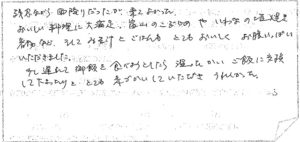 残念ながら雨降りだったが、来てよかった。
おいしい料理に大満足、富山のこぶじめ や いわなの塩焼き
などなど、そして みそ汁と ごはんも とてもおいしく お腹いっぱい
いただきました。
少し遅れて御飯を食べようとしたら 温かい ご飯に交換
して下さったり と とても 気づかいしていただき うれしかった。